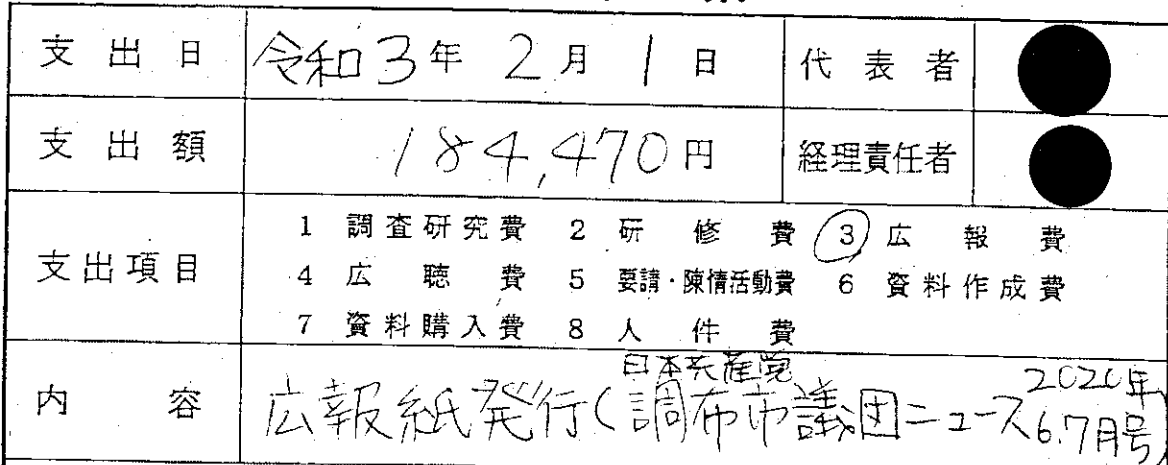 支出日 令和3年 2月 1日 代表者
支出額 184,470円 経理責任者
支出項目
1 調査研究費 2 研修費 3 広報費
4 広聴費 5 要請・陳情活動費 6 資料作成費
7 資料購入費 8 人件費
内容 広報紙発行(日本共産党調布市議団ニュース2020年6.7月号)